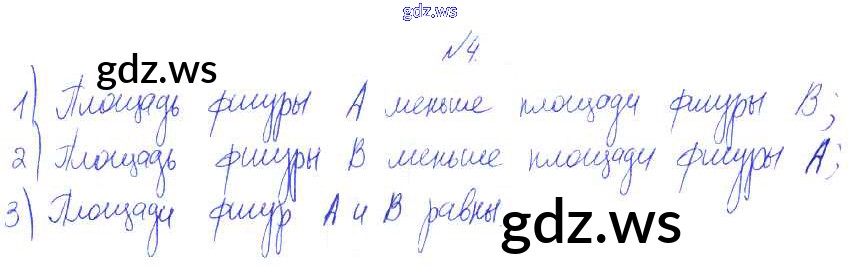 gdz.ws
№4.
gdz.ws
1) Площадь фигуры А меньше площади фигуры В;
2) Площадь фигуры В меньше площади фигуры А;
3) Площади фигур А и В равны.
gdz.ws